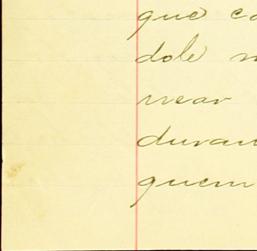 que co
dole n
near
duran
quem